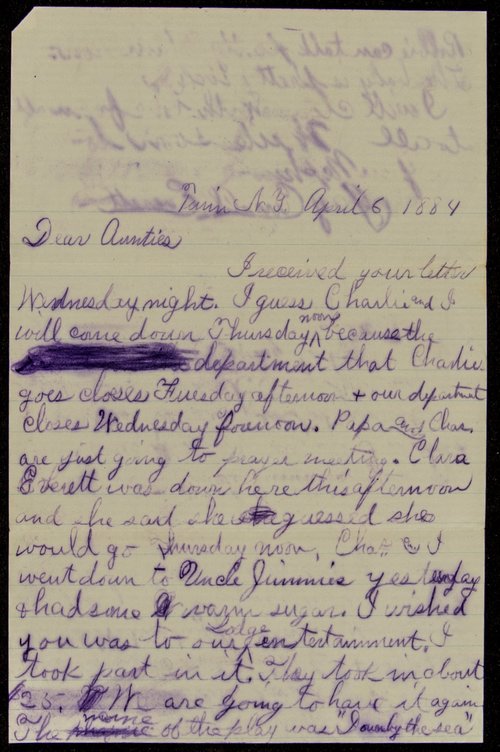 Fairs N.Y. April 6 1884
Dear Aunties
I received your letter
Wednesday night. I guess Charlie and I
will come down Thursday noon because the
department that Charlie
goes closes Tuesday afternoon + our department
closes Wednesday forenoon. Papa and Char.
are just going to prayer meeting. Clara
Everett was down here this afternoon
and she said she guessed she
would go Thursday noon. Chas. & I
went down to Uncle Jimmies yesterday
& had some warm sugar. I wished
you was to our Lodge entertainment. I
took part in it. They took in about
25. We are going to have it again
The name of the play was "Down by the sea"